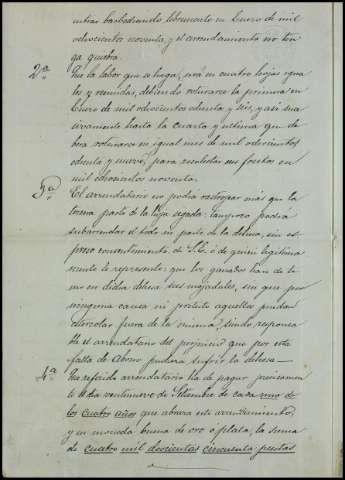 entras barbechando libremente en Enero de mil
ochocientos noventa, y el arrendamiento no ten
ga quiebra.
2.ª Que la labor que se haga, será en cuatro hojas igua
les y reunidas, debiendo roturarse la primera en
Enero de mil ochocientos ochenta y seis, y asi suc
sivamente hasta la cuarta y ultima que de
bera roturarse en igual mes de mil ochocientos
ochenta y nueve, para
mil ochocientos noventa.
3.ª El arrendatario no podrá rastrojear mas que la
tercera parte de la hoja segada: tampoco podrá
subarrendar el todo ni parte de la dehesa, sin es
preso consentimiento de S. E. ó de quien legitima
mente le represente: que los ganados han de te
ner en dicha dehesa sus majadales, sin que por
ninguna causa ni pretesto aquellos puedan
estercolar fuera de la misma, siendo responsa
ble el arrendatario del perjuicio que por esta
falta de Abono pudiera sufrir la dehesa.—
4.ª Que referido arrendatario ha de pagar precisamen
te el dia veintinueve de Setiembre de cada uno de
los cuatro años que abraza este arrendamiento,
y en moneda buena de oro ó plata, la suma
de cuatro mil doscientas cincuenta pesetas